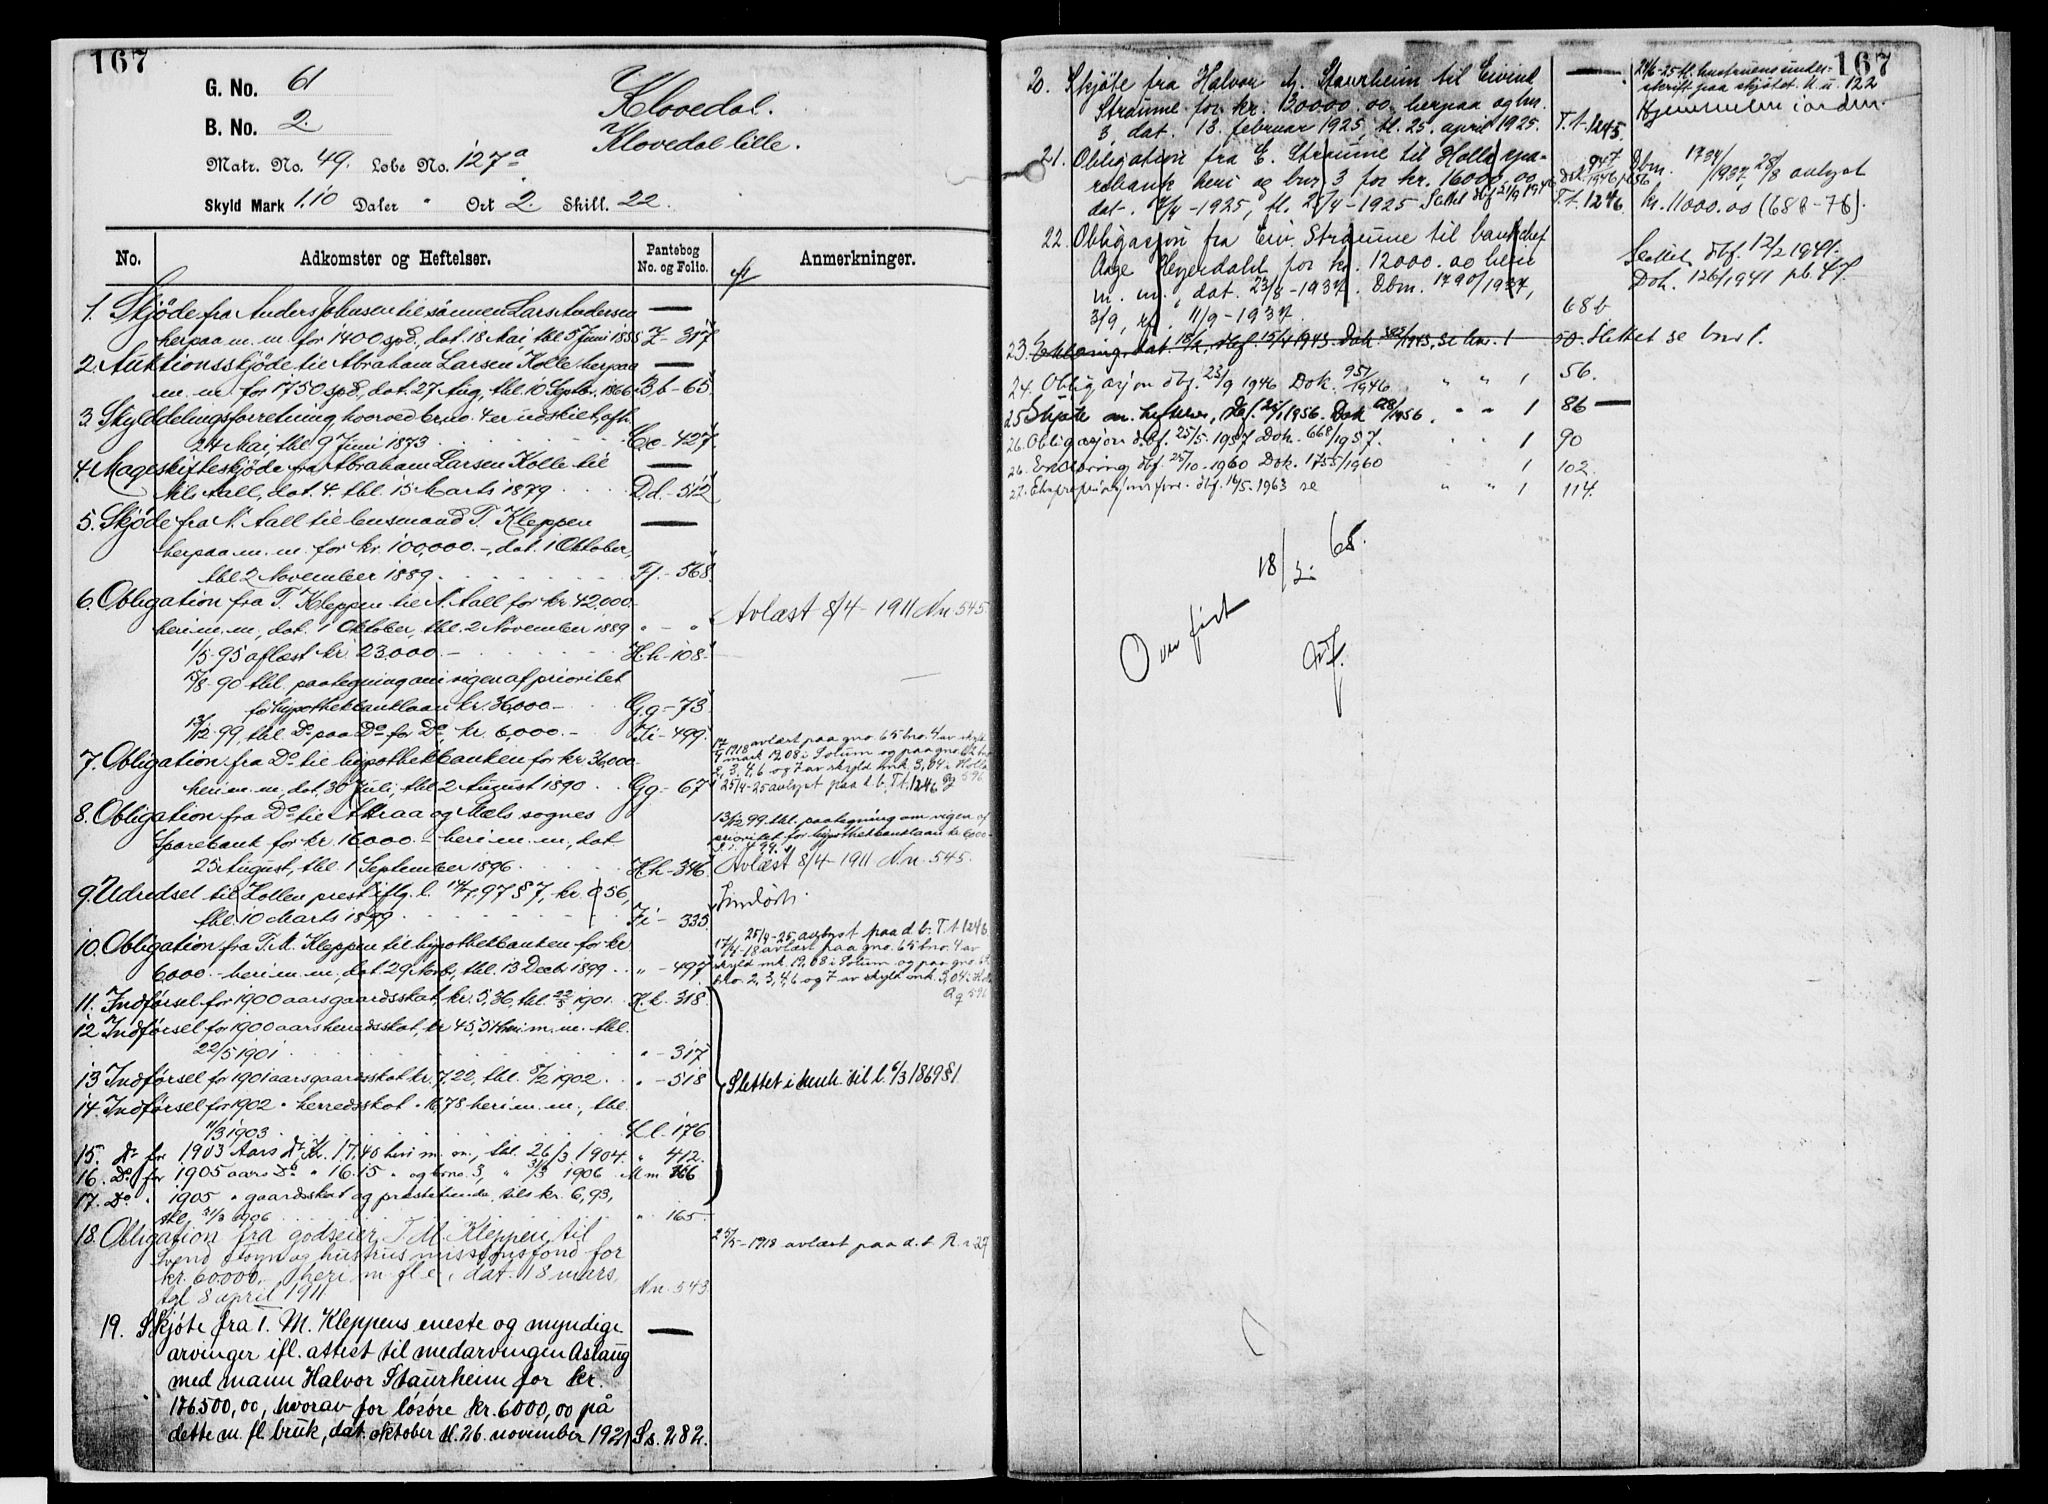 167
G. No. 61
B. No. 2.
Matr. No. 49. Løbe No. 127a
Skyld Mark 1.10 Daler " Ort 2. Skill. 22.
Klovedal.
Klovedal lille.
No. Adkomster og Heftelser. Pantebog No. og Folio. Anmerkninger.
1. Skjøde fra Anders Johnsen til sønnen Lars Andersen
herpaa m. m. for 1400 spd, dat. 18 Mai, tbl. 5 Juni 1855 Z - 317
2. Auktionsskjøde til Abraham Larsen Kolle herpaa
m. m. for 1750 spd, dat. 27 Aug, tbl. 10 Septbr. 1866 Bb - 65
3. Skylddelingsforretning hvorved br.no. 4 er udskilt, afh.
24 Mai, tbl. 9 Juni 1873 Cc - 427
4. Mageskifteskjøde fra Abraham Larsen Kolle til
Nils Aall, dat. 4. tbl. 15 Marts 1879 Dd. - 512
5. Skjøde fra N. Aall til lensmand T. Kleppen
herpaa m. m. for kr. 100,000.-, dat. 1 Oktober,
tbl. 2 November 1889 Ff. - 568
6. Obligation fra T. Kleppen til N. Aall for kr. 42,000.-
heri m. m., dat. 1 Oktober, tbl. 2 November 1889 " - " Avlæst 8/4 - 1911 Nn 545.
1/5-95 aflæst kr. 23,000.- H.h - 108
15/8-90 tbl. paategning om vigen af prioritet
for hypothekbanklaan kr. 36,000.- Gg - 73
13/12-99, tbl. Do paa Do for Do, kr. 6,000.- Ii - 499.
7. Obligation fra Do til hypothekbanken for kr. 36,000.-
heri m. m. dat. 30 Juli, tbl. 2 August 1890 Gg - 67
17/4 1918 avlæst paa gno. 65 bno. 4 av skyld
mark 19.08 i Solum og paa gno. 61 bno
2, 3, 4, 6 og 7 av skyld mk. 3,04 i Holla
Qq 596
25/4-25 avlyst paa d. b. T.t. 1246
8. Obligation fra Do til Atraa og Mæls sognes
Sparebank for kr. 16000.- heri m. m., dat.
25 August, tbl. 1 September 1896 H.h - 346
13/12 99. tbl. paategning om vigen af
prioritet for hypothekbanklaan kr. 6,000.-
I.i. 499.
Avlæst 8/4 - 1911 N.n. 545.
9. Udredsel til Hollen prest iflg. l. 14/7.97 § 7, kr. 0,56,
tbl. 10 Marts 1899 Ii - 335
10. Obligation fra T. M. Kleppen til hypothekbanken for kr
6000.- heri m. m., dat. 29 Novb., tbl. 13 Decbr 1899 " - 497
25/4-25 avlyst paa d. b. T.t. 1246
17/4-18 avlæst paa gno. 65 bno. 4 av
skyld mk. 19,08 i Solum og paa gno. 61
bno. 2, 3, 4, 6 og 7 av skyld mk. 3,04 i Holla
Qq 596
11. Indførsel for 1900 aars gaardsskat, kr. 5,36, tbl. 22/5 1901. K.k. 318.
12. Indførsel for 1900 aars herredsskat, kr 45,51 heri m. m. tbl.
22/5 1901 " - 317
13. Indførsel for 1901 aars gaardsskat kr. 7,22, tbl. 8/2 1902. " - 518
Slettet i henh. til l. 6/3 1869 § 1
14. Indførsel for 1902 " herredsskat " 16,78 heri m. m., tbl.
11/3 1903 Ll. 176
15. Do for 1903 Aars Do Kr. 17.40 heri m. m., tbl. 26/3. 1904. " 412.
16. Do for 1905 aars Do " 16.15 " og bno. 3, " 31/3 1906 Mm 166
17. Do " 1905 " gaardsskat og prestetiende, tils kr. 6,93,
tbl. 31/3 1906 " 165
18. Obligation fra godseier T. M. Kleppen til
Svend Foyn og hustrus missionsfond for
kr. 60000.- heri m. fl. e., dat. 18 mars,
tgl 8 april 1911 Nn. 543
25/5-1918 avlæst paa d. b. R. r 27
19. Skjøte fra T. M. Kleppens eneste og myndige
arvinger ifl. attest til medarvingen Aslaug
med mann Halvor Staurheim for kr.
186500,00, hvorav for løsøre kr. 6000,00 på
dette m. fl. bruk, dat. oktober tl. 26. november 1921 Ss. 282.
167
20. Skjøte fra Halvor M. Staurheim til Eivind
Straume for kr. 130000.00 herpaa og bnr.
3, dat. 13. februar 1925, tl. 25. april 1925. T.t. 1245.
24/6-25 tl. hustruens under-
skrift paa skjøtet. U.u. 122
Hjemmelen i orden.
21. Obligation fra E. Straume til Holla spa-
rebank heri og bnr. 3 for kr. 16000,00
dat. 14/4 - 1925, tl. 25/4 - 1925 Slettet dbf 21/9 1946 Dok 947/1946 pb 56 T.t. 1246.
Dbm. 1734/1937, 28/8 avlyst
kr. 11000.00 (68b - 76).
22. Obligasjon fra Eiv. Straume til banksjef
Aage Heyerdahl for kr. 12000.00 heri
m. m., dat. 23/8 - 1937. Dbm. 1790/1937,
3/9, rf. 11/9 - 1937. 68b
Slettet dbf. 12/2 1941.
Dok. 126/1941 pb. 47.
23. Erklæring, dat. 18/2, dbf 15/4 1943. Dok. 383/1943, se bnr. 1 50 Slettet se bnr 1.
24. Obligasjon dbf. 23/9 1946 Dok. 951/1946 " " 1 56.
25 Skjøte m. heftelser, dbf. 25/1 1956. Dok 128/1956. " " 1 86
26. Obligasjon dbf. 25/5. 1957 Dok. 668/1957. " " 1 90
26. Erklæring dbf. 25/10. 1960 Dok. 1755/1960 " 1 102
27. Ekspropriasjonsforr. dbf. 16/5. 1963 se " " 1 114.
Overført 18/3 - 65.